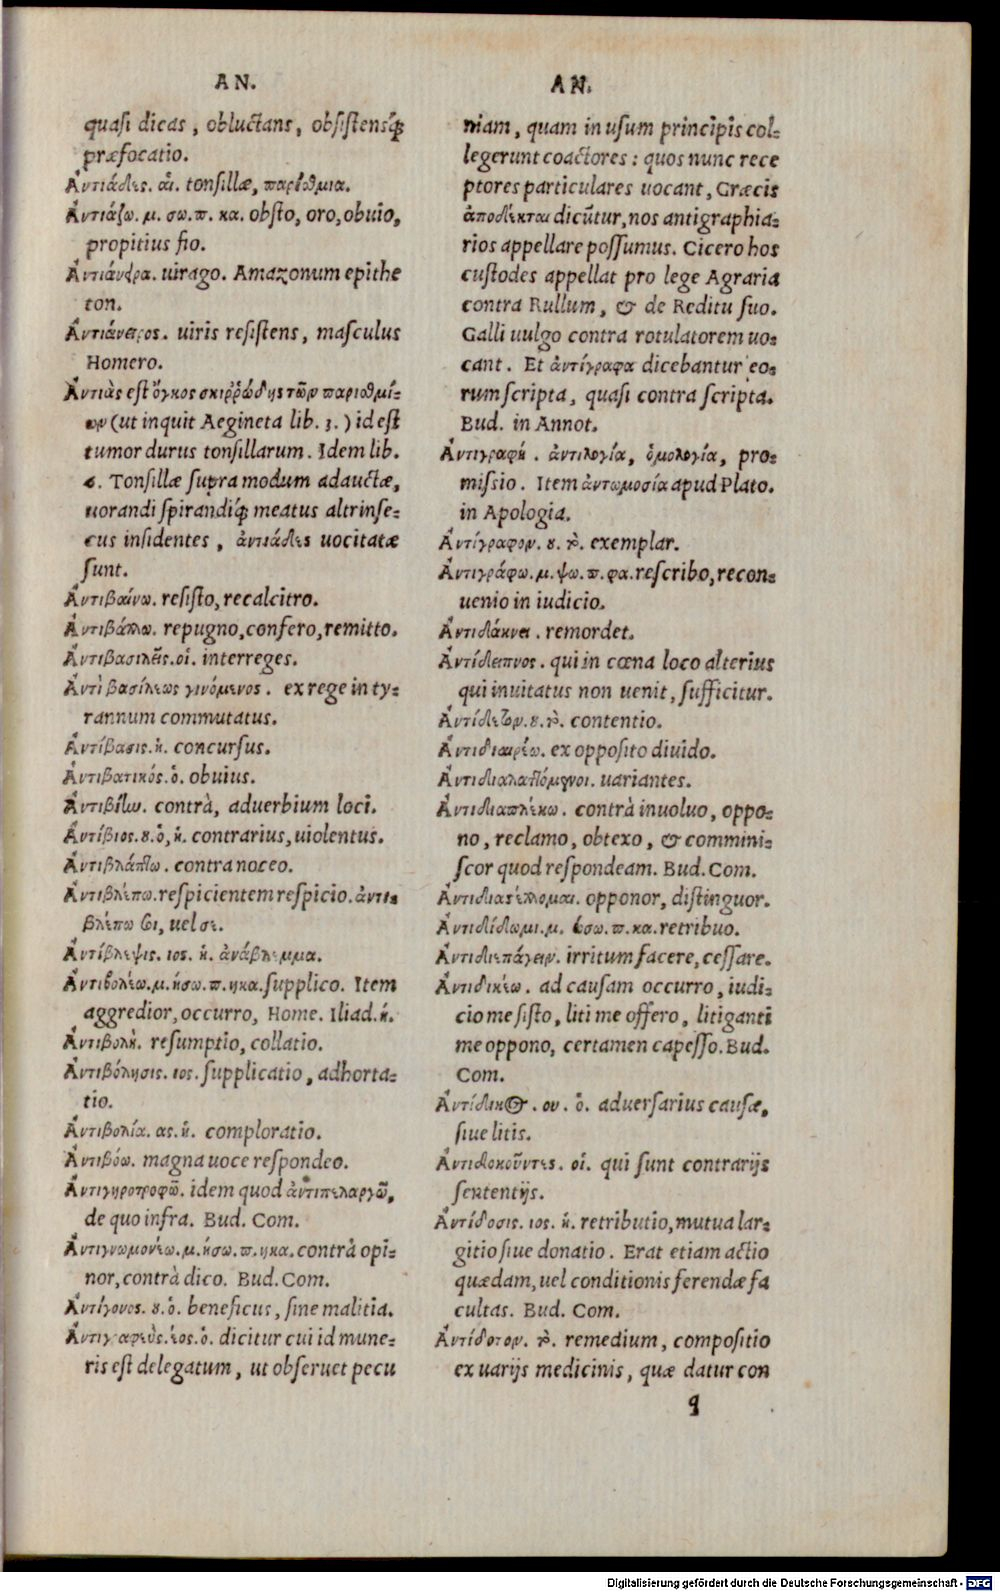 AN.
quasi dicas, obluctans, obsistensq́;
præfocatio.
Ἀντιάδες. αἱ. tonsillæ, παρίσθμια.
Ἀντιάζω. μ. σω. π. κα. obsto, oro, obuio,
propitius fio.
Ἀντιάνειρα. uirago. Amazonum epithe
ton.
Ἀντιάνειρος. uiris resistens, masculus
Homero.
Ἀντιὰς est ὄγκος σκιῤῥώδης τῶν παρισθμί-
ων (ut inquit Aegineta lib. 3.) id est
tumor durus tonsillarum. Idem lib.
6. Tonsillæ supra modum adauctæ,
uorandi spirandiq́; meatus altrinse-
cus insidentes, ἀντιάδες uocitatæ
sunt.
Ἀντιβαίνω. resisto, recalcitro.
Ἀντιβάλλω. repugno, confero, remitto.
Ἀντιβασιλεῖς. οἱ. interreges.
Ἀντὶ βασίλεως γινόμενος. ex rege in ty-
rannum commutatus.
Ἀντίβασις. ἡ. concursus.
Ἀντιβατικός. ὁ. obuius.
Ἀντιβίω. contrà, aduerbium loci.
Ἀντίβιος. ου. ὁ, ἡ. contrarius, uiolentus.
Ἀντιβλάπτω. contra noceo.
Ἀντιβλέπω. respicientem respicio. ἀντι-
βλέπω σοι, uel σε.
Ἀντίβλεψις. ιος. ἡ. ἀνάβλεμμα.
Ἀντιβολέω. μ. ήσω. π. ηκα. supplico. Item
aggredior, occurro, Home. Iliad. ή.
Ἀντιβολή. resumptio, collatio.
Ἀντιβόλησις. ιος. supplicatio, adhorta-
tio.
Ἀντιβολία. ας. ἡ. comploratio.
Ἀντιβόω. magna uoce respondeo.
Ἀντιγηροτροφῶ. idem quod ἀντιπελαργῶ,
de quo infra. Bud. Com.
Ἀντιγνωμονέω. μ. ήσω. π. ηκα. contrà opi-
nor, contrà dico. Bud. Com.
Ἀντίγονος. ου. ὁ. beneficus, sine malitia.
Ἀντιγραφεὺς. έος. ὁ. dicitur cui id mune-
ris est delegatum, ut obseruet pecu
AN.
niam, quam in usum principis col-
legerunt coactores: quos nunc rece
ptores particulares uocant, Græcis
ἀποδέκται dicūtur, nos antigraphia-
rios appellare possumus. Cicero hos
custodes appellat pro lege Agraria
contra Rullum, & de Reditu suo.
Galli uulgo contra rotulatorem uo-
cant. Et ἀντίγραφα dicebantur eo-
rum scripta, quasi contra scripta.
Bud. in Annot.
Ἀντιγραφή. ἀντιλογία, ὁμολογία, pro-
missio. Item ἀντωμοσία apud Plato.
in Apologia.
Ἀντίγραφον. ου. τὸ. exemplar.
Ἀντιγράφω. μ. ψω. π. φα. rescribo, recon-
uenio in iudicio.
Ἀντιδάκνει. remordet.
Ἀντίδειπνος. qui in cœna loco alterius
qui inuitatus non uenit, sufficitur.
Ἀντίδεξον. ου. τὸ. contentio.
Ἀντιδιαιρέω. ex opposito diuido.
Ἀντιδιαλαττόμενοι. uariantes.
Ἀντιδιαπλέκω. contrà inuoluo, oppo-
no, reclamo, obtexo, & commini-
scor quod respondeam. Bud. Com.
Ἀντιδιαστέλλομαι. opponor, distinguor.
Ἀντιδίδωμι. μ. ώσω. π. κα. retribuo.
Ἀντιδιεπάγειν. irritum facere, cessare.
Ἀντιδικέω. ad causam occurro, iudi-
cio me sisto, liti me offero, litiganti
me oppono, certamen capesso. Bud.
Com.
Ἀντίδικος. ου. ὁ. aduersarius causæ,
siue litis.
Ἀντιδοκοῦντες. οἱ. qui sunt contrarijs
sententijs.
Ἀντίδοσις. ιος. ἡ. retributio, mutua lar-
gitio siue donatio. Erat etiam actio
quædam, uel conditionis ferendæ fa
cultas. Bud. Com.
Ἀντίδοτον. τὸ. remedium, compositio
ex uarijs medicinis, quæ datur con
q
Digitalisierung gefördert durch die Deutsche Forschungsgemeinschaft - DFG